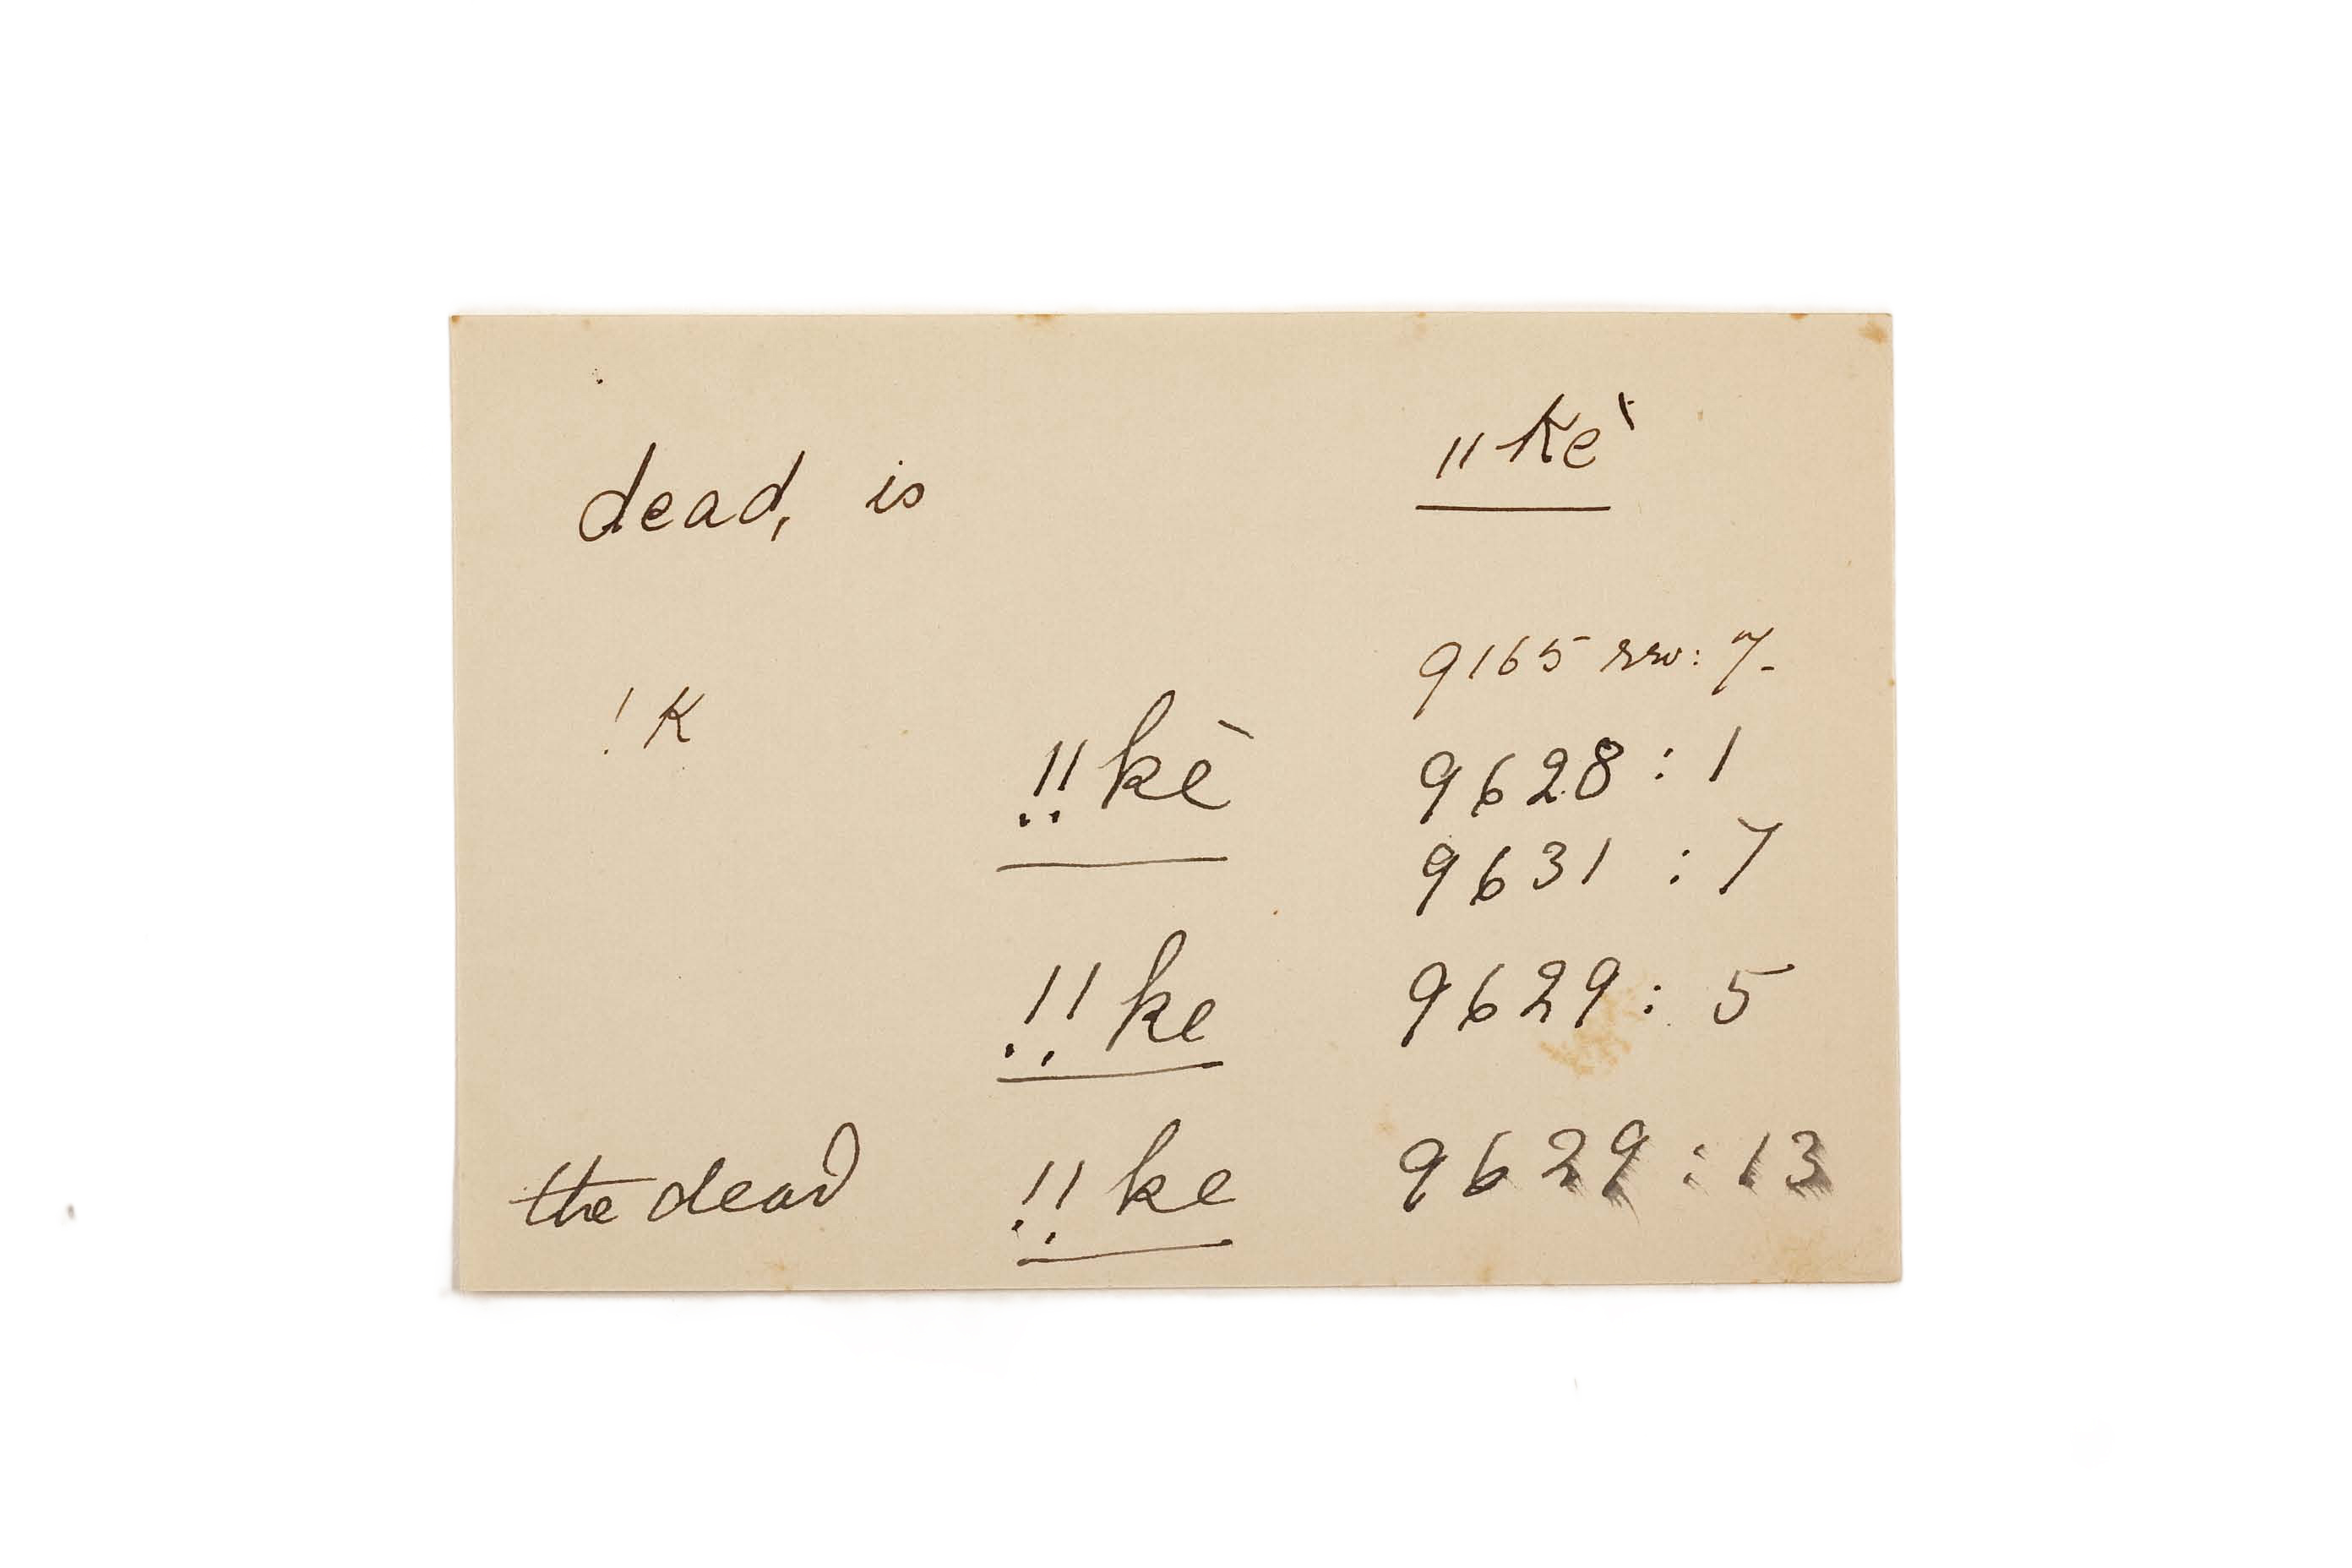 dead, is ǁkè
9165 rev: 7.
!k ‼kè 9628 : 1
9631 : 7
‼ke 9629 : 5
the dead ‼ke 9629 : 13